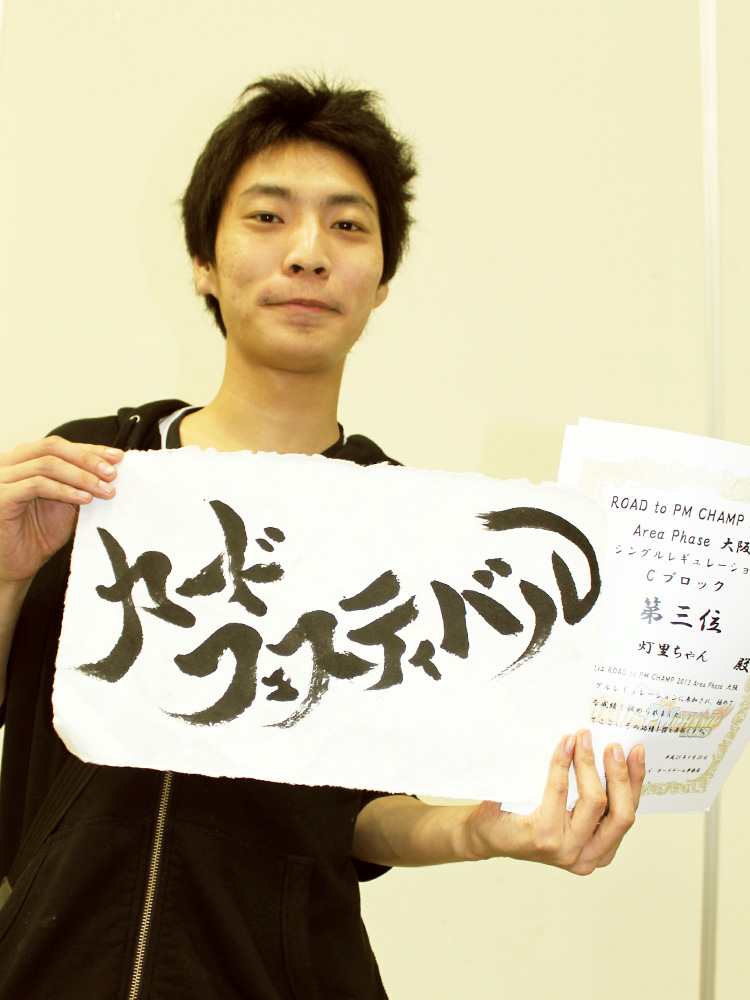 カード
フェスティバル
ROAD to PM CHAMP
Area Phase 大阪
シングルレギュレーショ
Cブロック
第三位
灯里ちゃん 殿
は ROAD to PM CHAMP 2013 Area Phase 大阪
グルレギュレーションに参加され、極めて
な成績を収められました